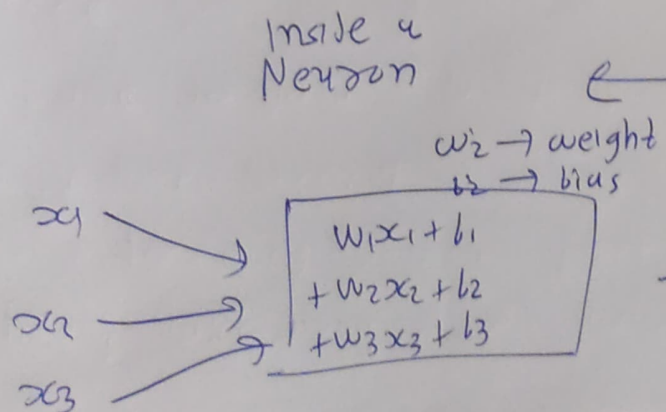 Inside a
Neuron
wi → weight
bi → bias
x1
w1x1 + b1
x2
+ w2x2 + b2
x3
+ w3x3 + b3